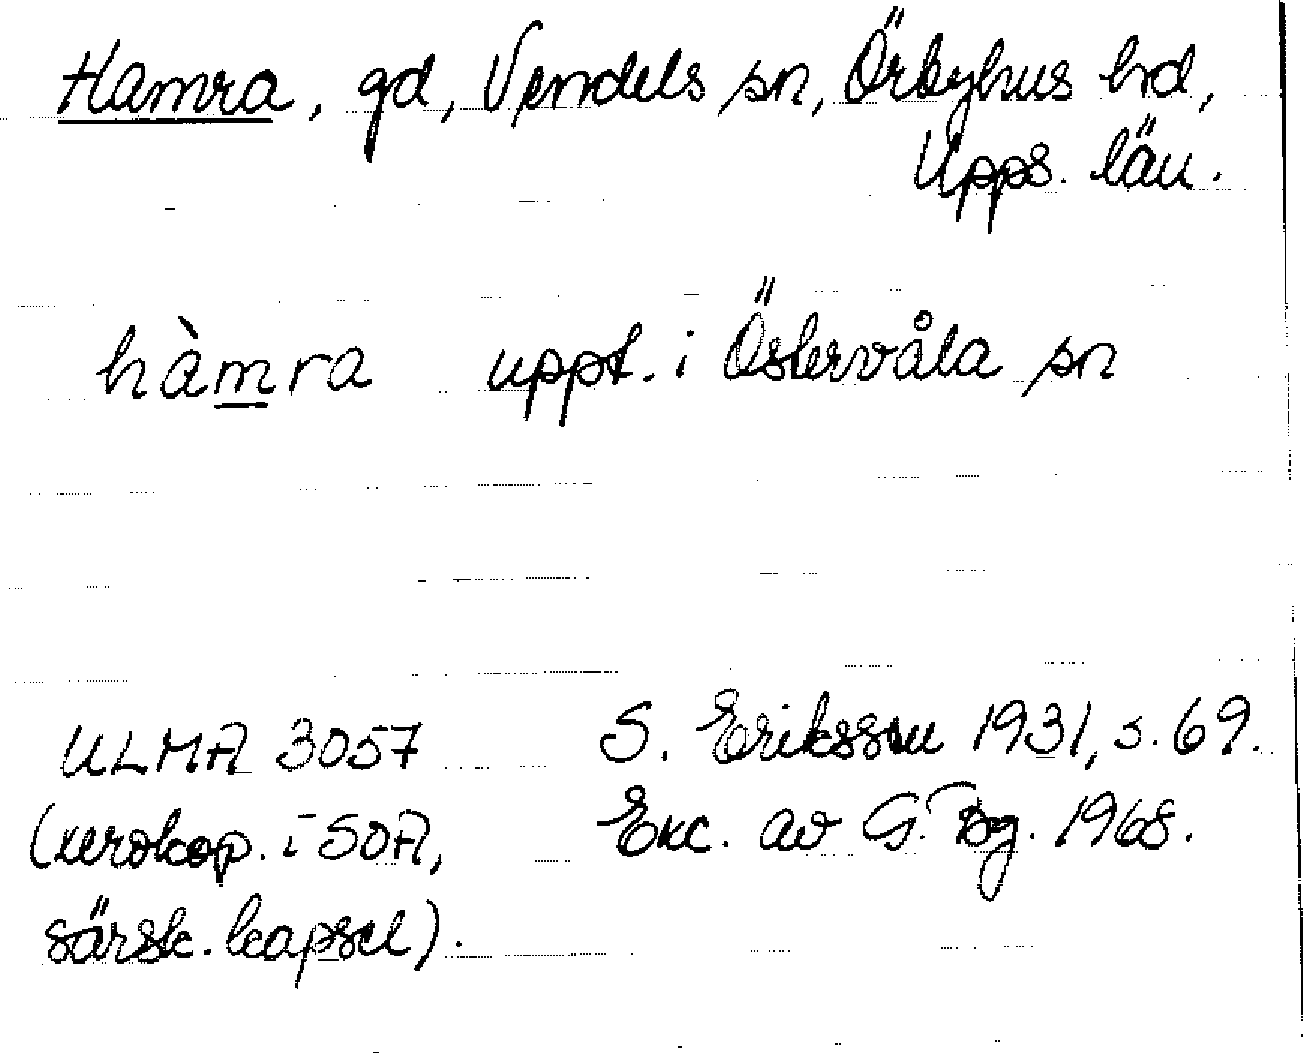 Hamra, gd, Vendels sn, Örbyhus hd,
Upps. län.
hàmra uppt. i Östervåla sn
ULMA 3057 S. Eriksson 1931, s. 69.
(xerokop. i SOA, Exc. av G. Bg. 1968.
särsk. kapsel).